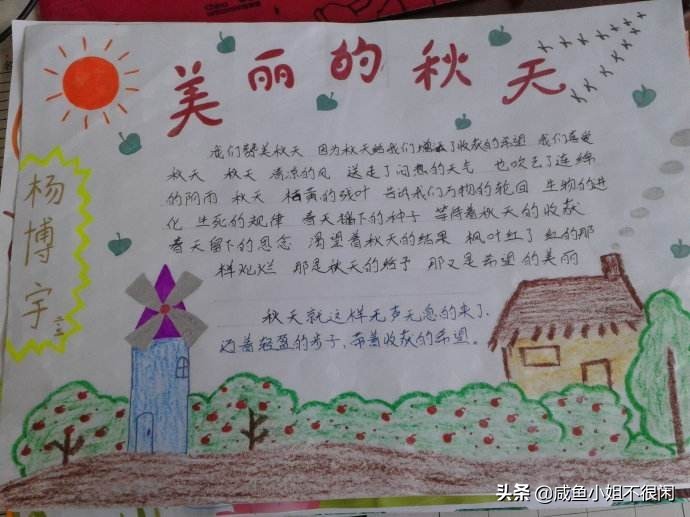 美丽的秋天
杨博宇
二.三
我们赞美秋天 因为秋天给我们增添了收获的希望 我们喜爱
秋天 秋天 清凉的风 送走了闷热的天气 也吹已了连绵
的阴雨 秋天 枯黄的残叶 告诉我们万物的轮回 生物的进
化 生死的规律 春天播下的种子 等待着秋天的收获
春天留下的思念 渴望着秋天的结果 枫叶红了 红的那
样灿烂 那是秋天的给予 那又是希望的美丽
秋天就这样无声无息的来了,
迈着轻盈的步子,带着收获的希望。
头条 @咸鱼小姐不很闲